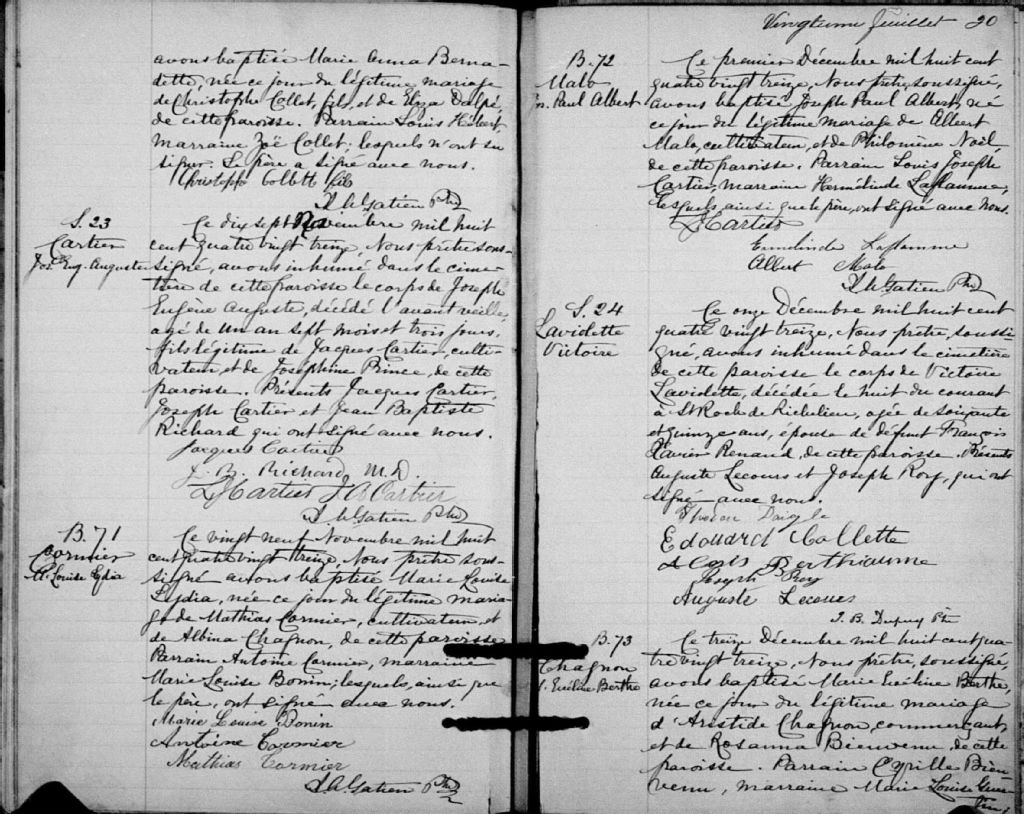 avons baptisé Marie Anna Berna-
dette, née ce jour du légitime mariage
de Christophe Collet, fils, et de Eliza Dalpé,
de cette paroisse. Parrain Louis Hébert,
marraine Zoë Collet; lesquels n'ont su
signer. Le père a signé avec nous.
Christophe Collett fils
Gatien Ptre
S. 23
Cartier
Jos. Eug. Auguste
Ce dix sept Novembre mil huit
cent quatre vingt treize, Nous prêtre sous-
signé, avons inhumé dans le cime-
tière de cette paroisse le corps de Joseph
Eugène Auguste, décédé l'avant veille,
agé de un an sept mois et trois jours,
fils légitime de Jacques Cartier, culti-
vateur, et de Josephine Prince, de cette
paroisse. Présents Jacques Cartier,
Joseph Cartier et Jean Baptiste
Richard qui ont signé avec nous.
Jacques Cartier
J. B. Richard M.D.
Cartier J B Cartier
Gatien Ptre
B. 71
Cormier
M. Louise Lydia
Ce vingt neuf Novembre mil huit
cent quatre vingt treize, Nous prêtre sous-
signé avons baptisé Marie Louise
Lydia, née ce jour du légitime maria-
ge de Mathias Cormier, cultivateur, et
de Albina Chagnon, de cette paroisse
Parrain Antoine Cormier, marraine
Marie Louise Bonin; lesquels, ainsi que
le père, ont signé avec nous.
Marie Louise Bonin
Antoine Cormier
Mathias Cormier
Gatien Ptre
Vingtième feuillet 20
B. 72
Malo
Jos. Paul Albert
Ce premier Décembre mil huit cent
quatre vingt treize, Nous prêtre, soussigné,
avons baptisé Joseph Paul Albert, né
ce jour du légitime mariage de Albert
Malo, cultivateur, et de Philomène Noël,
de cette paroisse. Parrain Louis Joseph
Cartier, marraine Hermélinde Laflamme,
lesquels, ainsi que le père, ont signé avec nous.
L J Cartier
Ermelinde Laflamme
Albert Malo
Gatien Ptre
S. 24
Laviolette
Victoire
Ce onze Décembre mil huit cent
quatre vingt treize, Nous prêtre, soussi-
gné, avons inhumé dans le cimetière
de cette paroisse le corps de Victoire
Laviolette, décédée le huit du courant
à St Roch de Richelieu, agée de soixante
et quinze ans, épouse de défunt François
Xavier Renaud, de cette paroisse. Présents
Auguste Lecours et Joseph Roy, qui ont
signé avec nous.
Daigle
Edouard Collette
Alexis Berthiaume
Joseph Roy
Auguste Lecours
J. B. Dupuy Ptr
B. 73
Chagnon
M. Eveline Berthe
Ce treize Décembre mil huit cent qua-
tre vingt treize, Nous prêtre, soussigné,
avons baptisé Marie Evéline Berthe,
née ce jour du légitime mariage
d'Aristide Chagnon, commerçant,
et de Rosanna Bienvenu, de cette
paroisse. Parrain Cyrille Bien-
venu, marraine Marie Louise Guer-
tin;